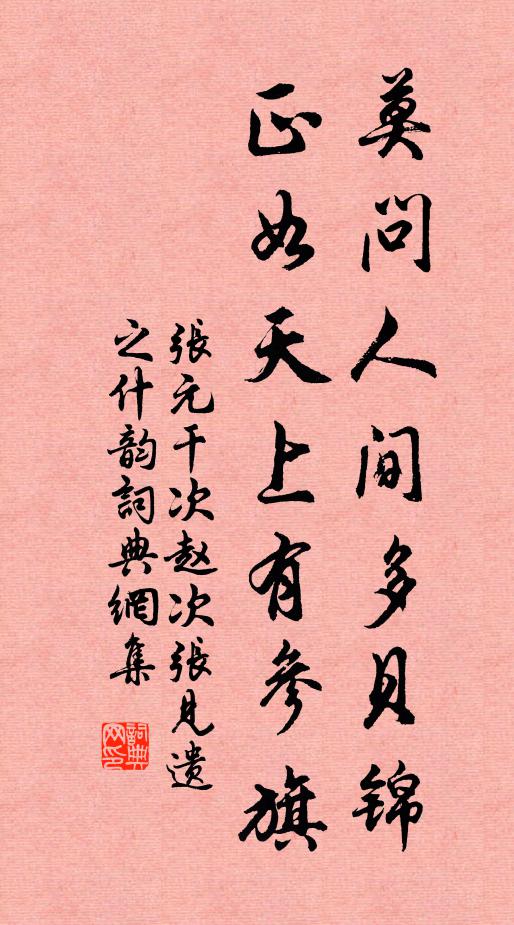 莫问人间多贝锦
正如天上有参旗
張元干次赵次張見遗
之什韵詞典網集
詞典网印